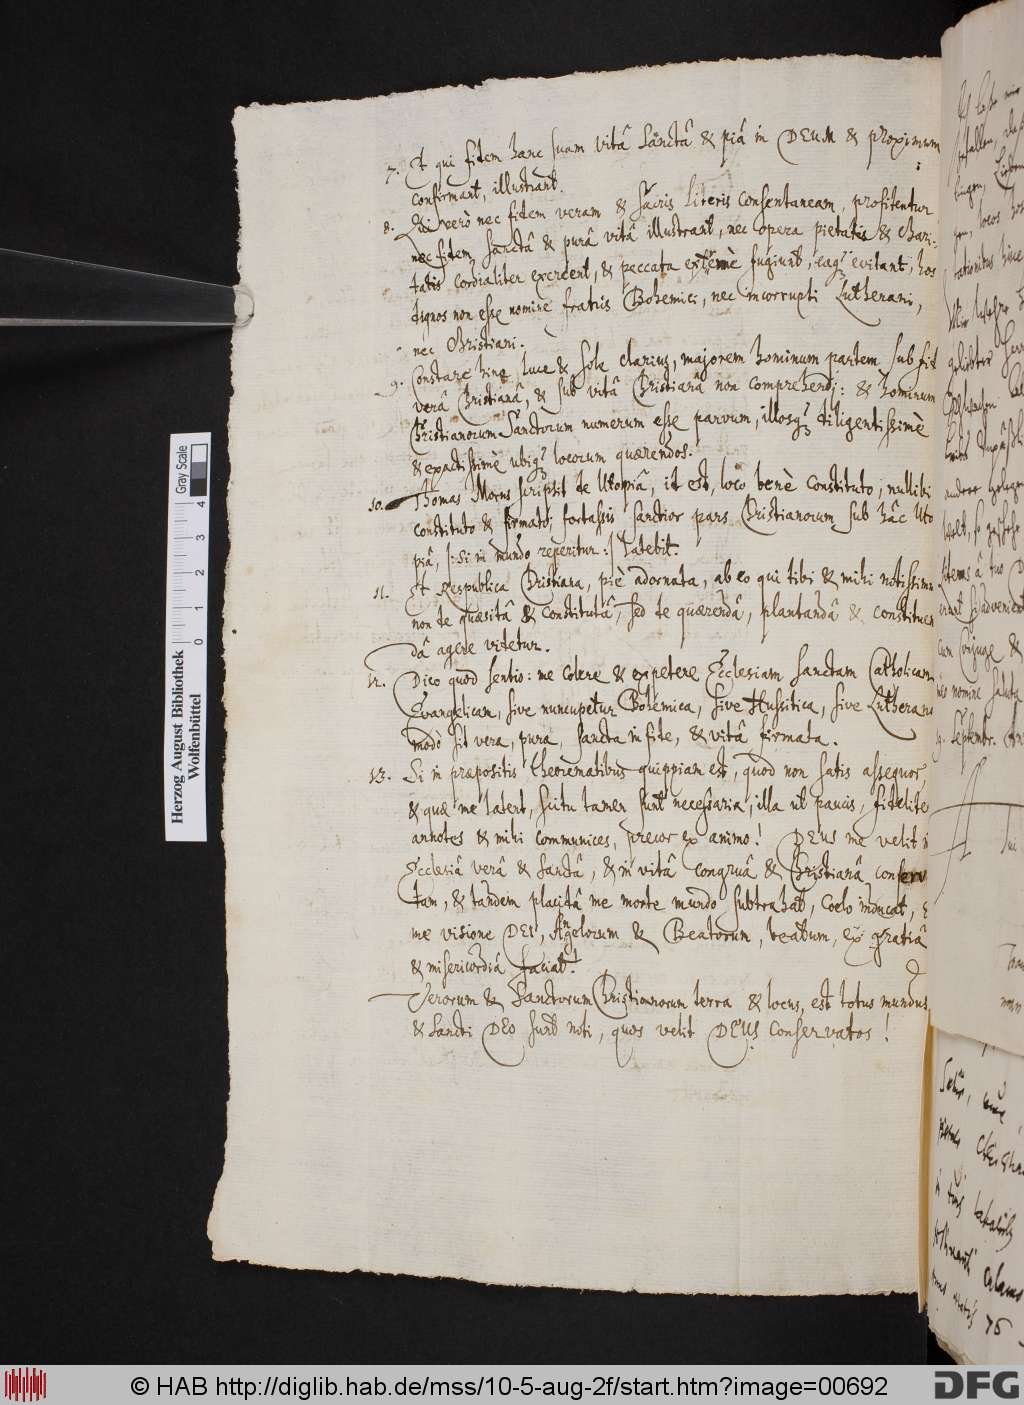 7. Et qui fidem hanc suam vitâ Sanctâ & piâ in DEUM & proximum
confirmant, illustrant.
8. Qui verò nec fidem veram & Sacris Literis consentaneam, profitentur
nec fidem sanctâ & purâ vitâ illustrant, nec opera pietatis & chari-
tatis cordialiter exercent, & peccata extremè fugiunt, eaq; evitant, hos
dignos non esse nomine fratris Bohemici, nec incorrupti Lutherani,
nec Christiani.
9. Constare hinc, luce & Sole clarius, majorem hominum partem, sub fide
verâ Christianâ, & sub vitâ Christianâ non comprehendi: & hominum
Christianorum Sanctorum numerum esse parvum, illosq; diligentissimè
& exactissimè ubiq; locorum quærendos.
10. Thomas Morus scripsit de Utopiâ, id est, loco benè constituto, nullibi
constituto & firmato, fortassis sanctior pars Christianorum sub hâc Uto
piâ, /: si in mundo reperitur :/ latebit.
11. Et Respublica Christiana, piè adornata, ab eo qui tibi & mihi notissimus
non de quæsitâ & constitutâ, sed de quærendâ, plantandâ & constituen
dâ agere videtur.
12. Dico quod sentio: me colere & expetere Ecclesiam sanctam Catholicam
Evangelicam, sive nuncupetur Bohemica, sive Hussitica, sive Lutherana
modò sit vera, pura, sancta in fide, & vitâ firmata.
13. Si in præpositis theorematibus quippiam est, quod non satis assequor,
& quæ me latent, scitu tamen sunt necessaria, illa ut paucis, fidelite
annotes & mihi communices, precor ex animo! DEUS me velit i
Ecclesiâ verâ & Sanctâ, & in vitâ congruâ & Christianâ conserv
tam, & tandem placitâ me morte mundo subtrahat, Coelo inducat, &
me visione DEI, Angelorum & Beatorum, beatum, ex gratiâ
& misericordiâ faciat!
Verorum & Sanctorum Christianorum terra & locus, est totus mundus,
& Sancti DEO sunt noti, quos velit DEUS conservatos!
Gray Scale
4 3 2 1 0
Herzog August Bibliothek
Wolfenbüttel
© HAB http://diglib.hab.de/mss/10-5-aug-2f/start.htm?image=00692
DFG